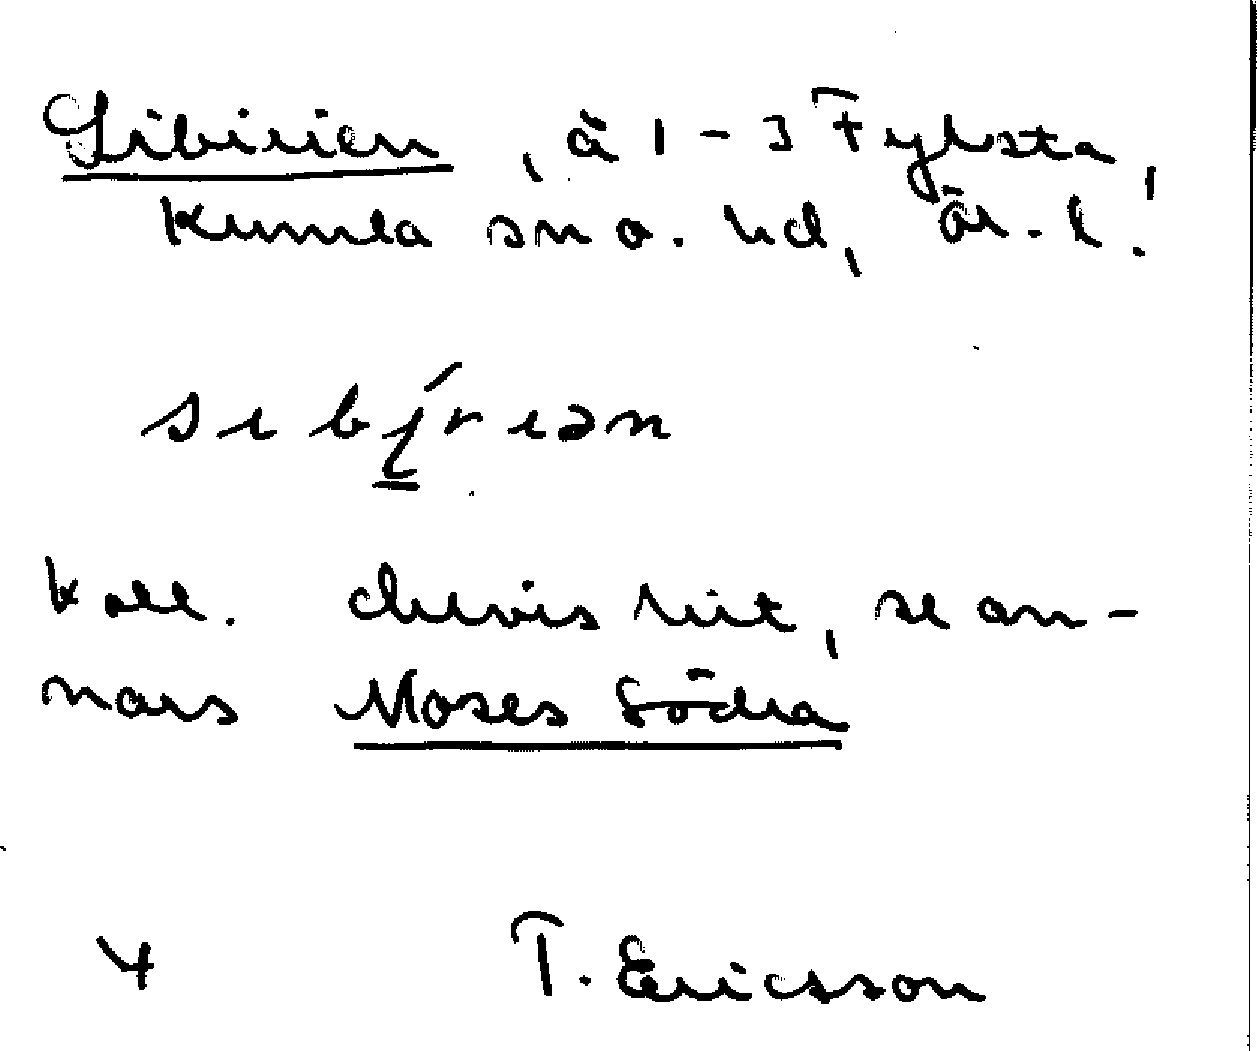 Sibirien, å 1-3 Fylsta,
Kumla sn o. hd, Ör. l.
sibı́rıən
Koll. delvis hit, se an-
nars Moses Södra
4 T. Ericsson